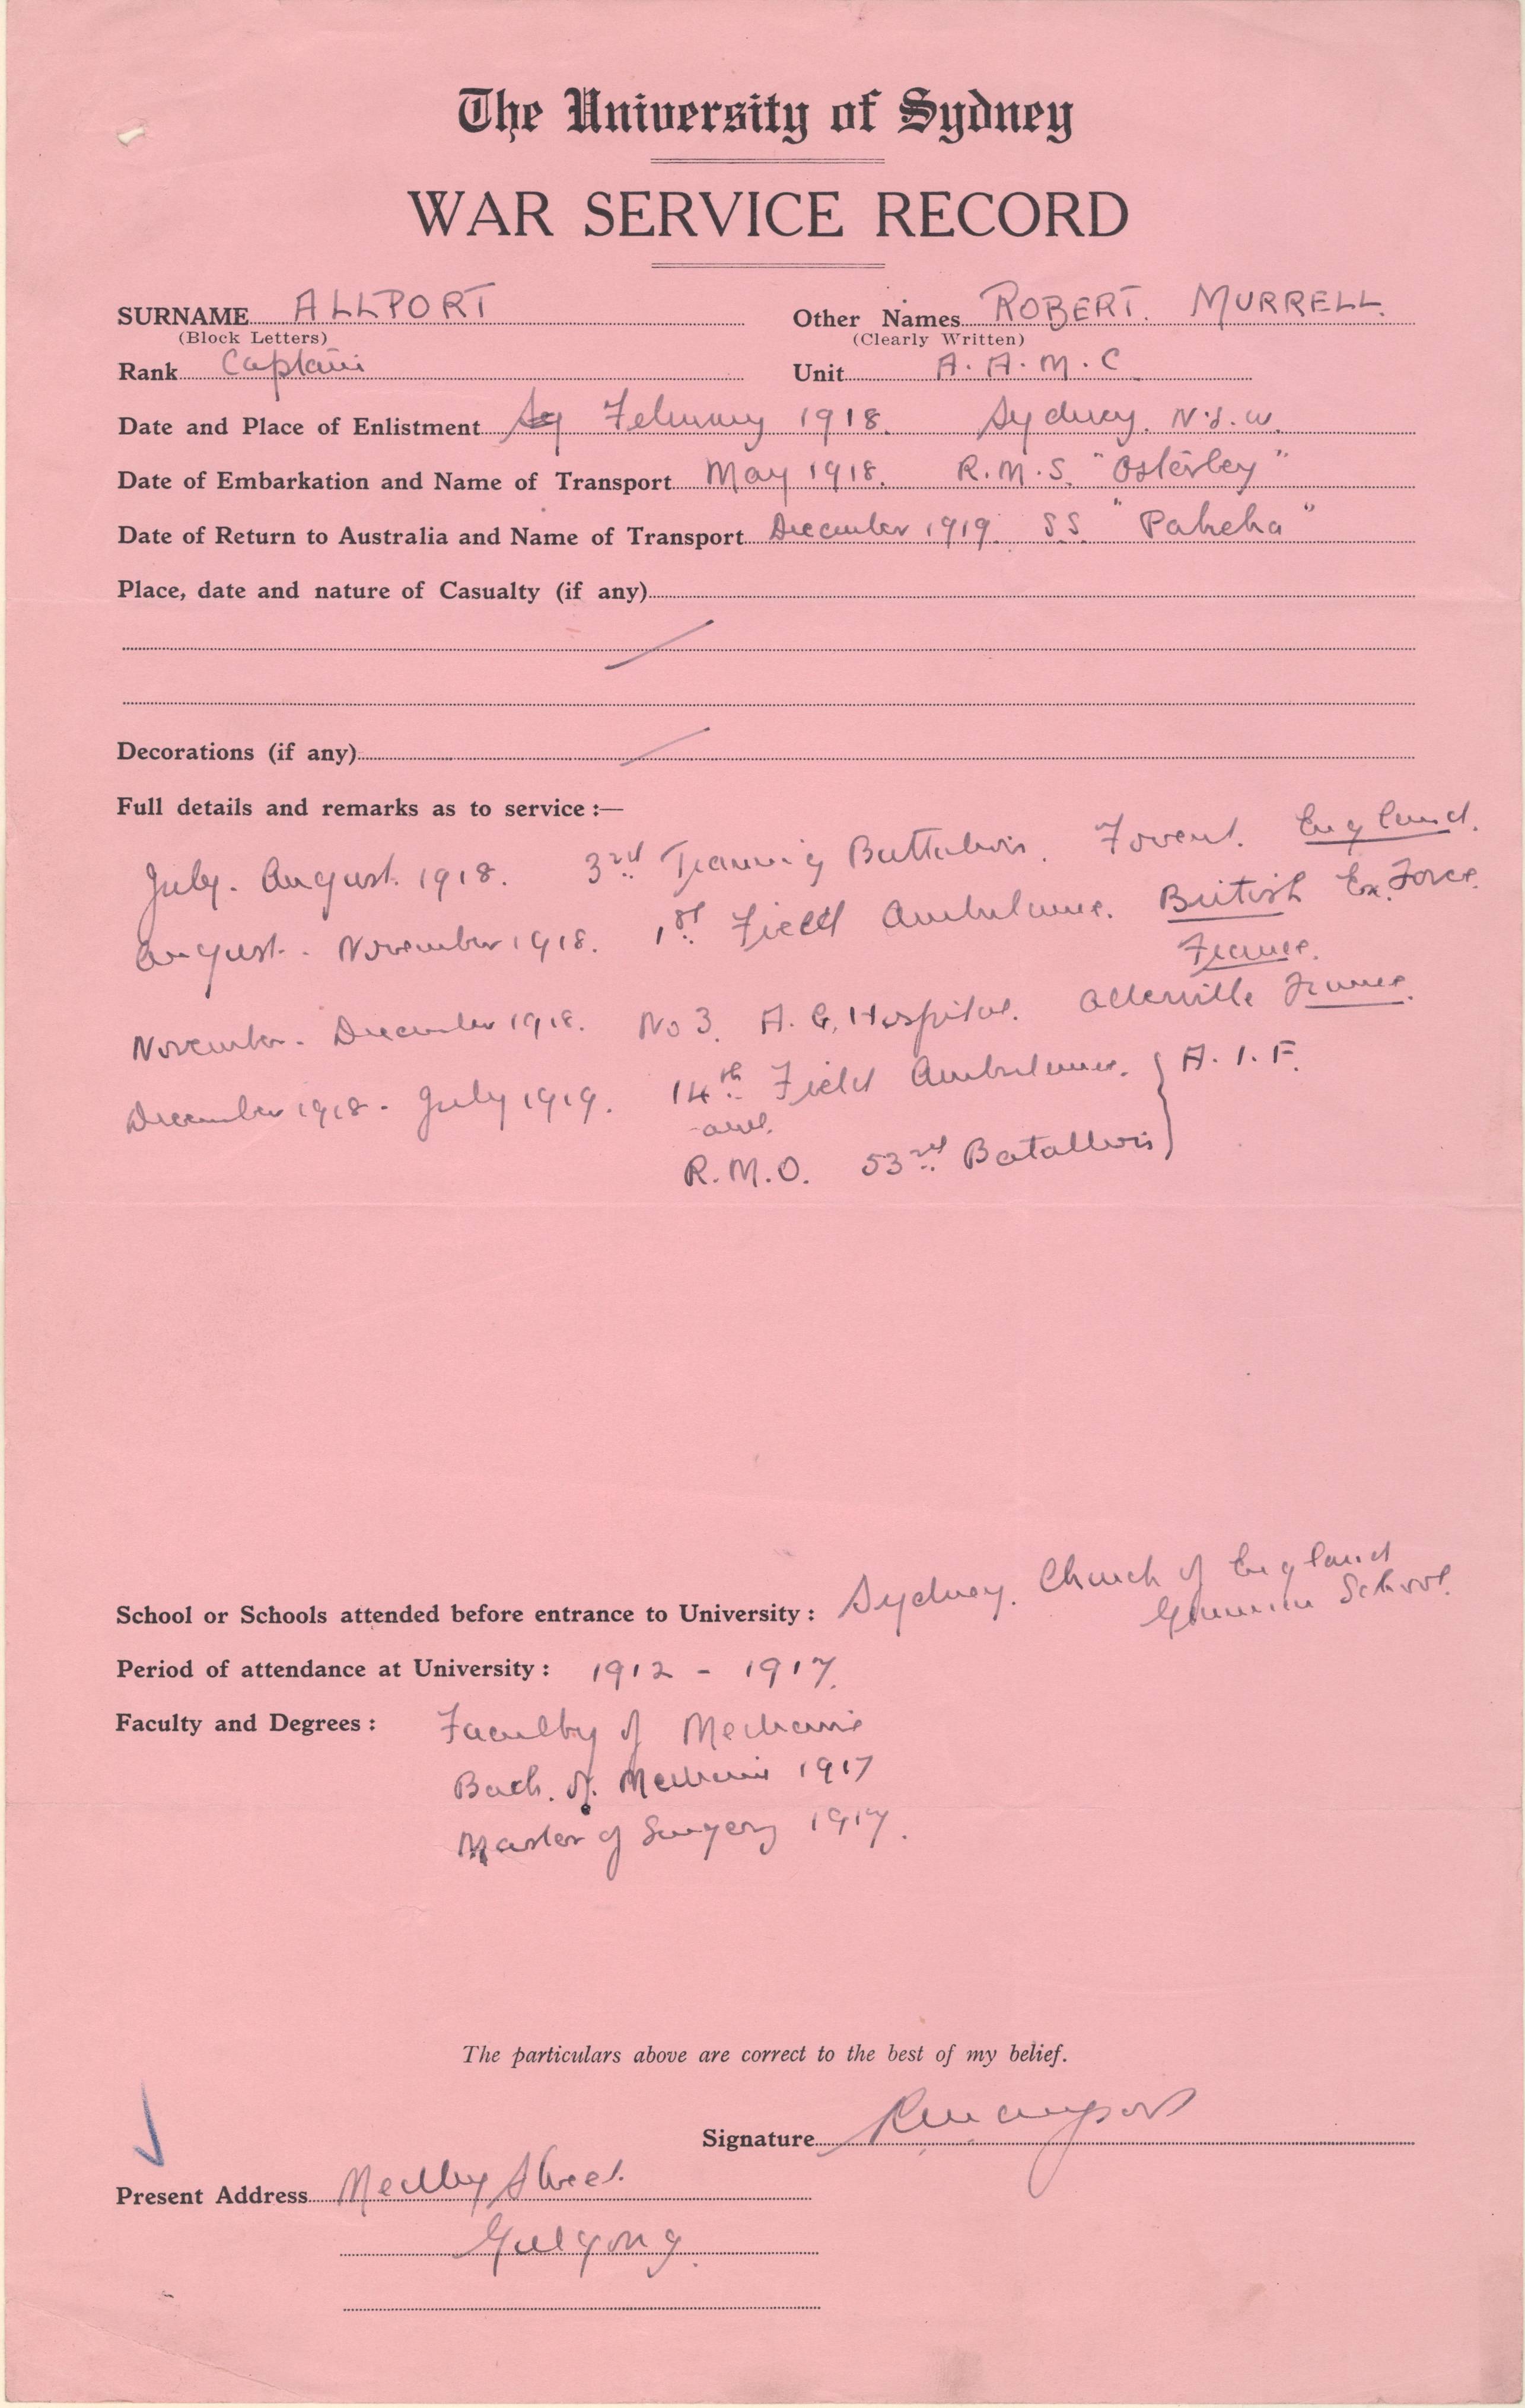 The University of Sydney
WAR SERVICE RECORD
SURNAME ALLPORT Other Names ROBERT. MURRELL.
(Block Letters) (Clearly Written)
Rank Captain Unit A. A. M. C
Date and Place of Enlistment February 1918. Sydney. N.S.W.
Date of Embarkation and Name of Transport May 1918. R.M.S. "Osterley"
Date of Return to Australia and Name of Transport December 1919. SS. "Pakeha"
Place, date and nature of Casualty (if any)
Decorations (if any)
Full details and remarks as to service :—
July. August. 1918. 3rd Training Battalion. Fovent. England.
August. - November 1918. 1st Field Ambulance. British Ex. Force.
France.
November. - December 1918. No 3. A. G. Hospital. France.
December 1918 - July 1919. 14th Field Ambulance. } A. I. F.
and.
R.M.O. 53rd Batallion
School or Schools attended before entrance to University : Sydney. Church of England
Grammar School.
Period of attendance at University : 1912 - 1917.
Faculty and Degrees : Faculty of Medicine
Bach. of. Medicine 1917
Master of Surgery 1917.
The particulars above are correct to the best of my belief.
Signature RMAllport
Present Address Street.
Gulgong.